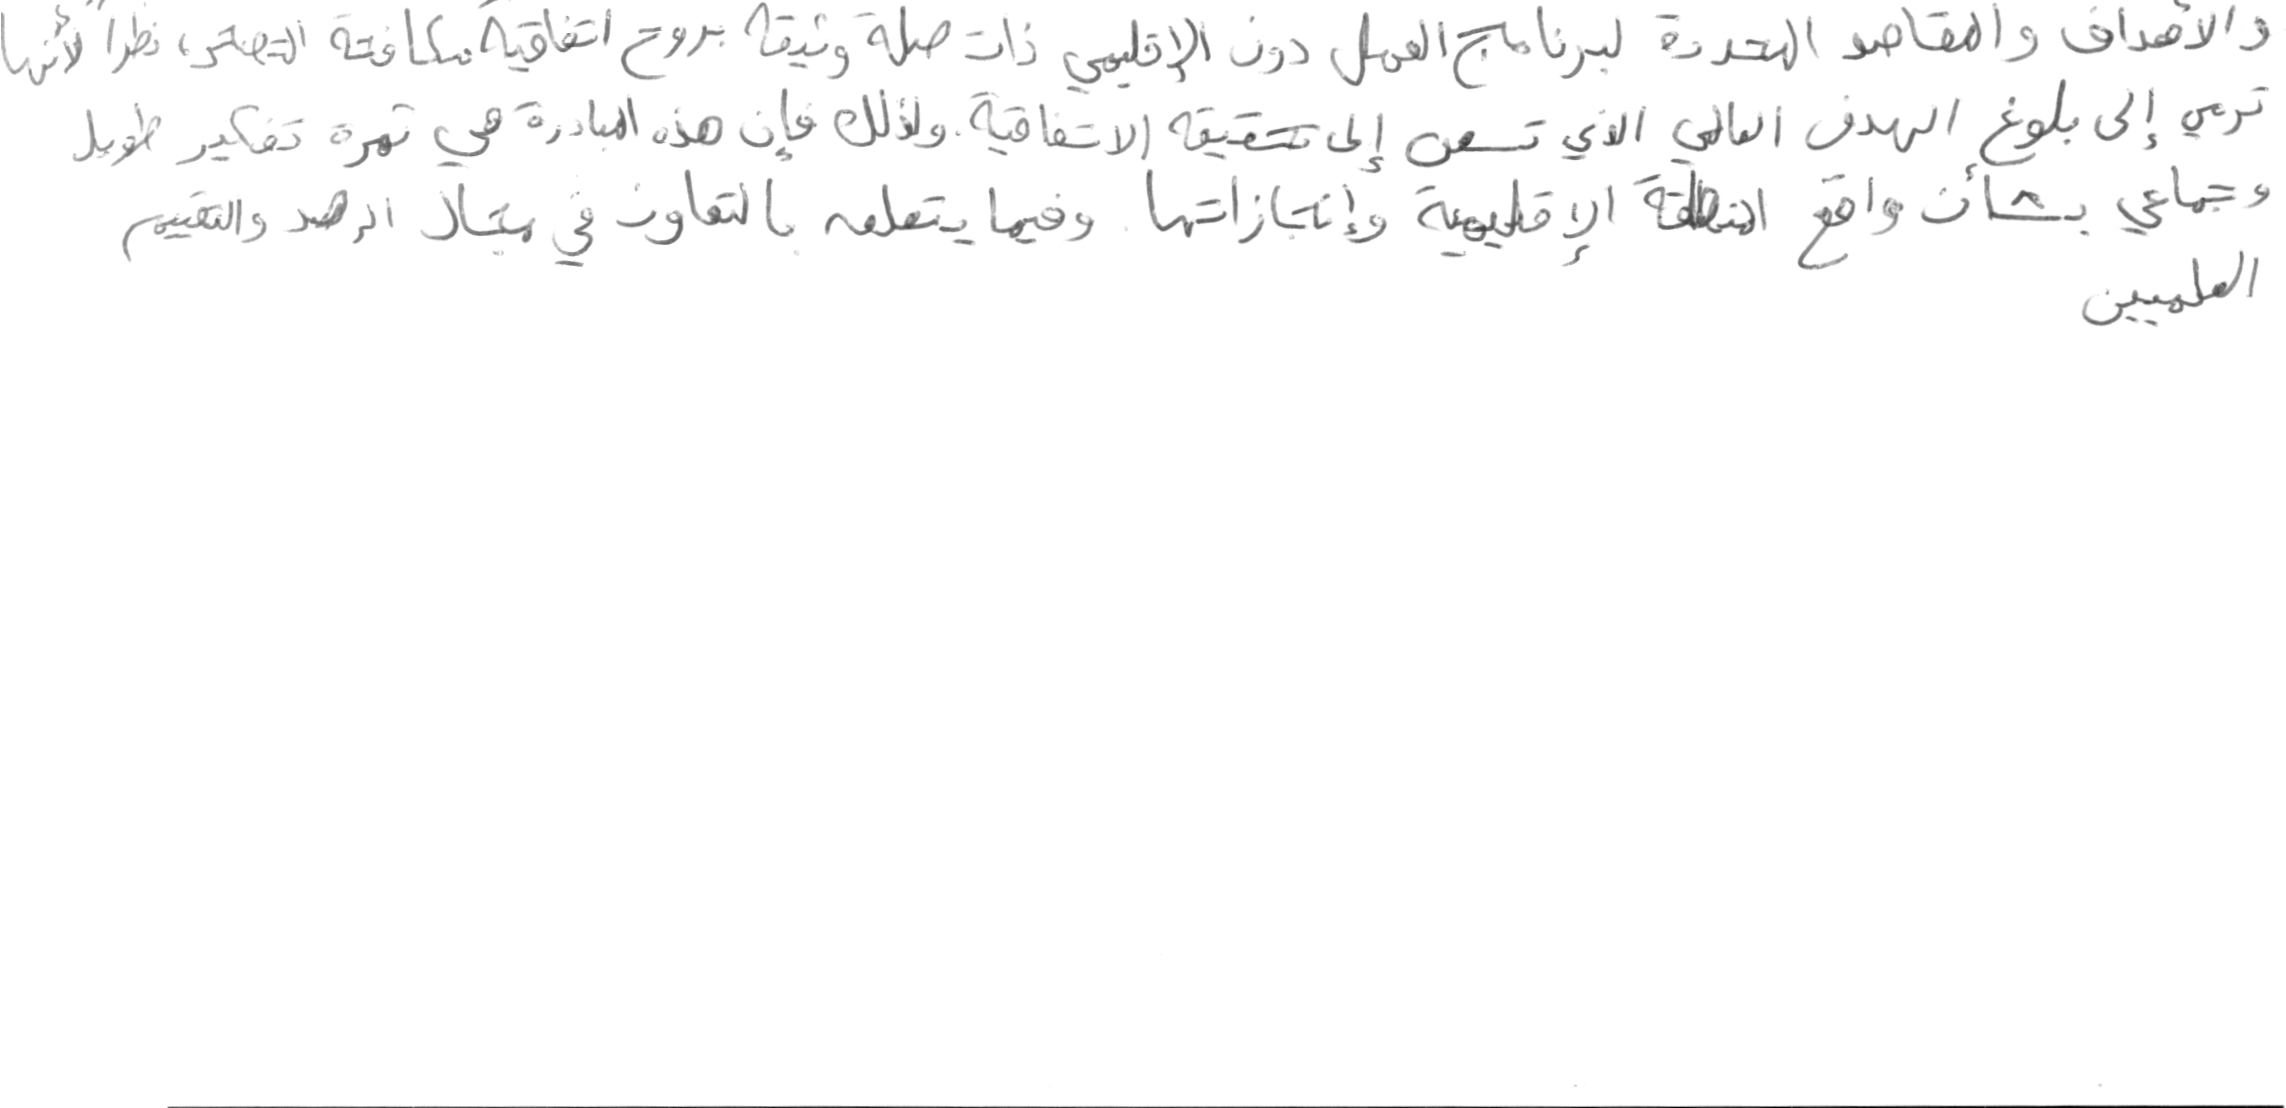 والأهداف والمقاصد المحددة لبرنامج العمل دون الإقليمي ذات صلة وثيقة بروح اتفاقية مكافحة التصحر، نظراً لأنها
ترمي إلى بلوغ الهدف العالمي الذي تسعى إلى تحقيقه الاتفاقية. ولذلك فإن هذه المبادرة هي ثمرة تفكير طويل
وجماعي بشأن واقع المنطقة الإقليمية وإنجازاتها. وفيما يتعلق بالتعاون في مجال الرصد والتقييم
العلميين